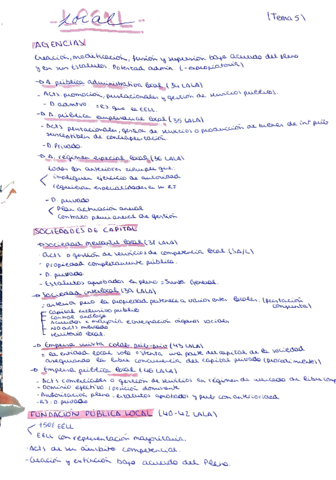 LOCAL
(Tema 5)
AGENCIAS
Creación, modificación, fusión y supresión bajo acuerdo del pleno
y en sus estatutos Potestad admva (-expropiatoria)
→ A. pública administrativa local (34 LALA)
- Acts promoción, prestacionales y gestión de servicios públicos.
- D. admtvo = RJ que la EELL.
→ A. pública empresarial local (35 LALA)
- Acts prestacionales, gestión de servicios o producción de bienes de int púb
susceptibles de contraprestación
- D. Privado
→ A. régimen especial local (36 LALA)
todas las anteriores siempre que:
impliquen ejercicio de autoridad
requieran especialidades en su RJ
- D. privado
Plan actuación anual
Contrato plurianual de gestión
SOCIEDADES DE CAPITAL
→ Sociedad mercantil local (38 LALA)
- Acts o gestión de servicios de competencia local
- Propiedad completamente pública.
- D. privado
- Estatutos aprobados x pleno = Junta General.
→ Sociedad interlocal (39 LALA)
= anterior pero la propiedad pertenece a varios entes locales (prestación
conjunta)
Capital exclusivo público
Control análogo
Acuerdos x mayoría e integración órganos sociales
NO acts mercado
territorio local.
→ Empresa mixta colab. púb-priv (43 LALA)
la entidad local solo ostenta una parte del capital de la sociedad
asegurando la libre concurrencia del capital privado
→ Empresa pública local (40 LALA)
- Act comerciales o gestión de servicios en régimen de mercado de libre comp
- Dominio efectivo / posición dominante
- Autorización pleno = estatutos aprobados y pub con anterioridad
- RJ D. privado
FUNDACIÓN PÚBLICA LOCAL (40-42 LALA)
+50% EELL
EELL con representación mayoritaria.
- Acts de su ámbito competencial.
- Creación y extinción bajo acuerdo del Pleno.